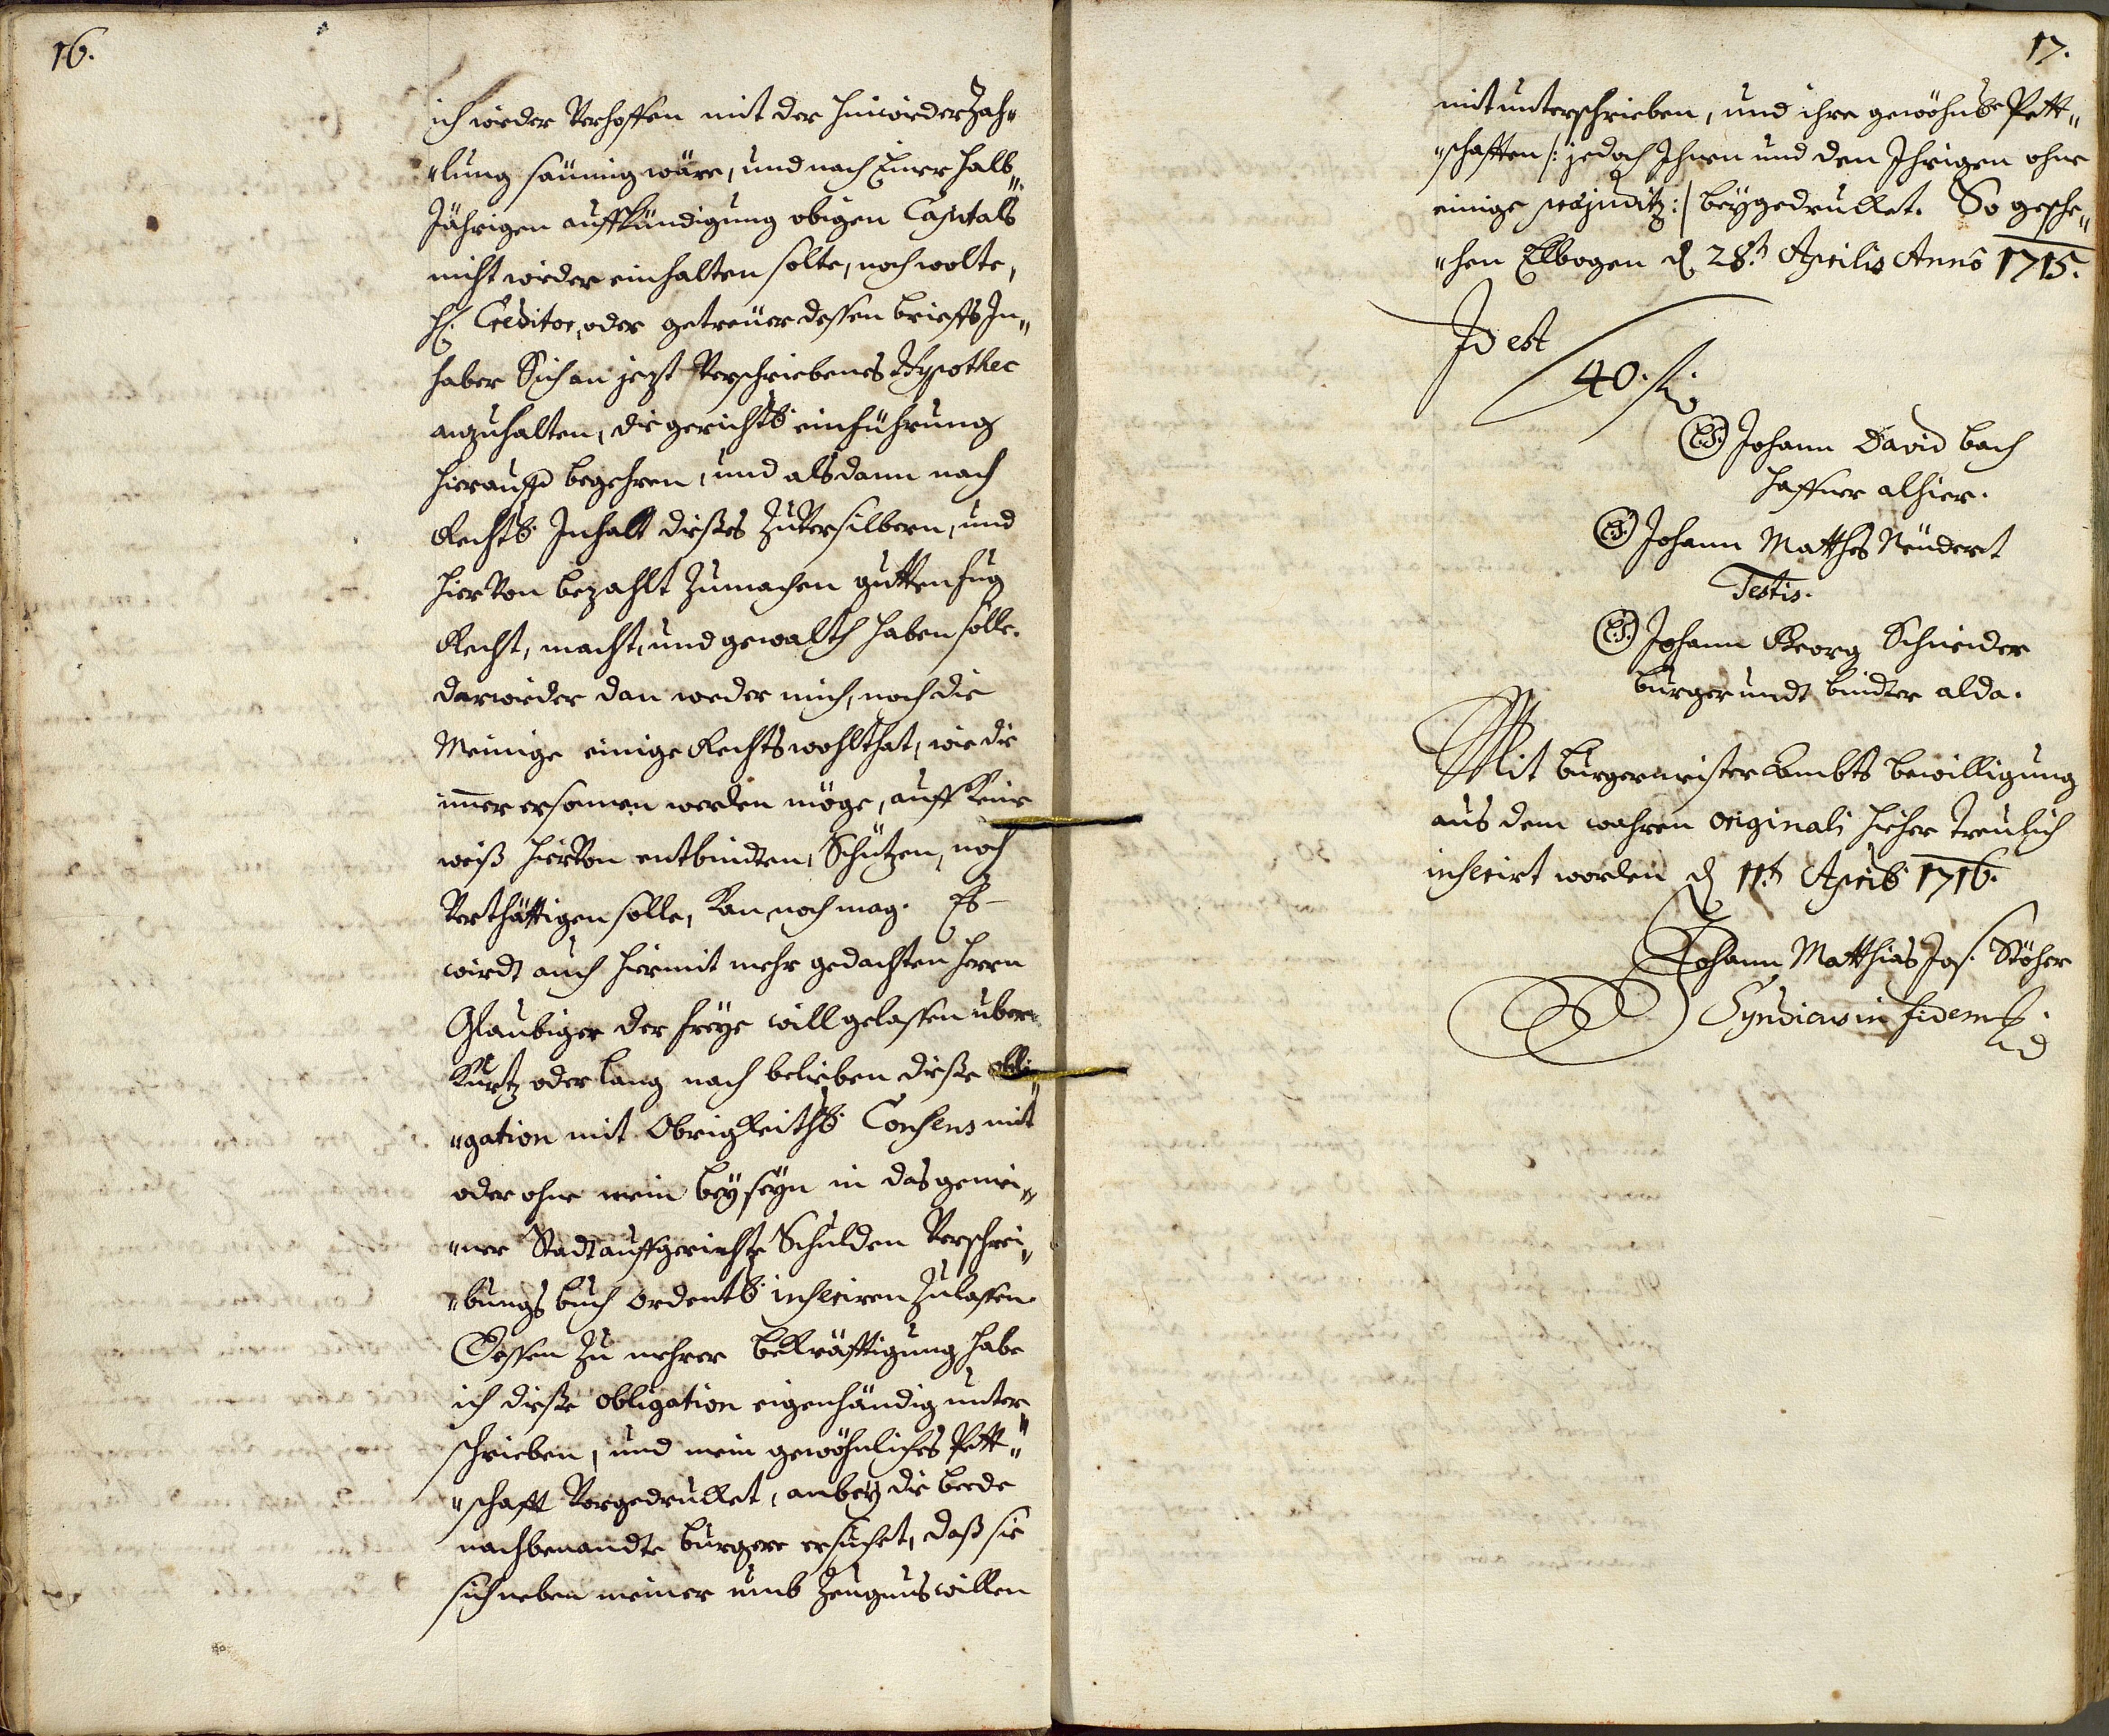 16.
ich wieder Verhoffen mit der hinwiederzah„
„lung säumig wäre, und nach Einer halb„
Jährigen auffkündigung obigen Capitals
nicht wieder einhalten solte, noch wolte,
H. Creditor, oder getreüer dessen brieffs In„
haber Sich an jezt Verschriebenes Hypothec
anzuhalten, die gerichtl. einführung
hierauff begehren, und alsdann nach
Rechtl. Inhalt dießes zu Versilbern, und
hierVon bezahlt zumachen gutten fug
Recht, macht, und gewalth haben solle.
darwieder dan weder mich, noch die
Meinige einige Rechts wohlthat, wie die
im̄er ersonnen werden möge, auff keine
weiß hierVon entbindten, Schützen, noch
Verthättigen solle, kan noch mag. Es
wirdt auch hiermit mehr gedachten Herrn
Glaubiger der freye will gelassen uber
kurtz oder lang nach belieben dieße obli„
„gation mit Obrigkeithl. Consens mit
oder ohne mein beyseyn in das gemei„
„ner Stadt auffgerichte Schulden Verschrei„
„bungs buch ordentl. inseriren zulassen.
Dessen zu mehrer bekräfftigung habe
ich dieße obligation eigenhändig unter
schrieben, und mein gewöhnliches Pett„
„schafft Vorgedrukket, anbey die beede
nachbenandte bürgere ersuchet, daß sie
sich neben meiner umb Zeugnus willen
17.
mit unterschrieben, und ihre gewöhnl. Pett„
„schafften /: jedoch Ihnen und den Ihrigen ohne
einige præjuditz :/ beygedrukket. So gesche„
„hen Elbogen d. 28.t Aprilis Anno 1715.
Id est
40. fl.
(L.S.) Johann David bach
Haffner alhier.
(L.S.) Johann Matthes Neudert
Testis.
(L.S.) Johann Georg Schneider
burger undt bindter alda.
Mit burgermeister Ambts bewilligung
aus dem wahren originali hieher treulich
inserirt worden d. 11.t Aprils 1716.
Johann Matthias Jos. Stöhr
Syndicus in fidem